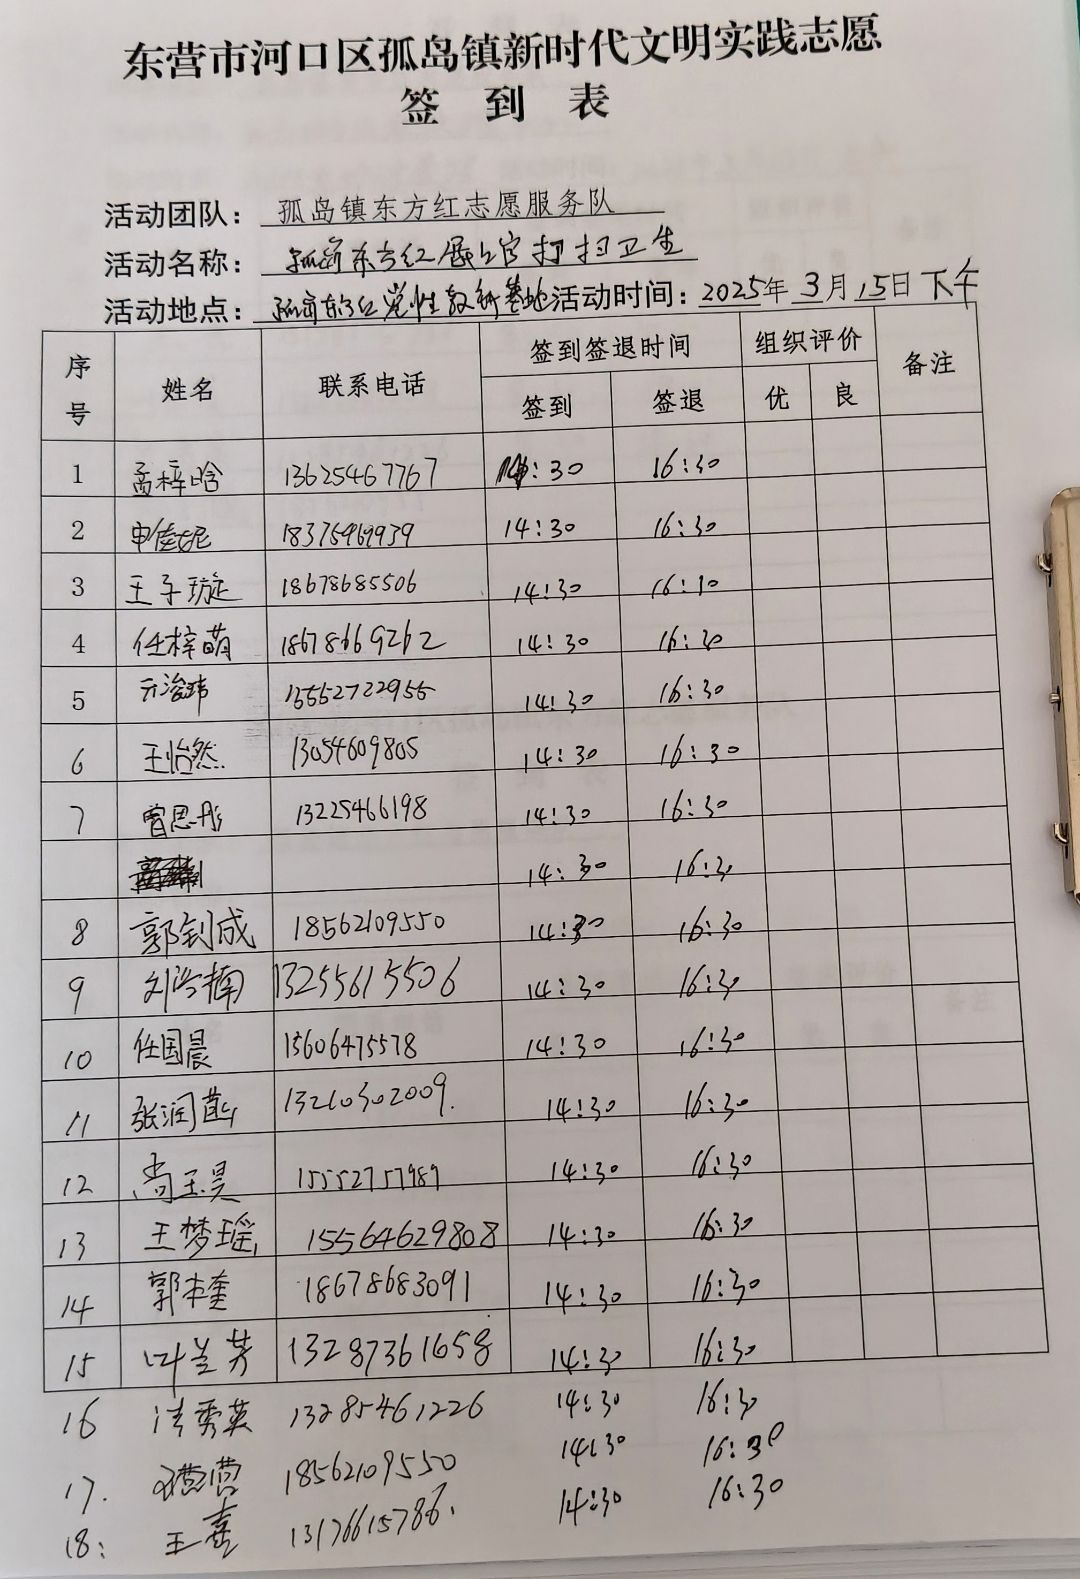 东营市河口区孤岛镇新时代文明实践志愿
签 到 表
活动团队：孤岛镇东方红志愿服务队
活动名称：孤岛东方红展览馆打扫卫生
活动地点：孤岛东方红党性教研基地活动时间：2025年3月15日下午
序号 姓名 联系电话 签到签退时间 组织评价 备注
签到 签退 优 良
1 孟梓晗 13625467767 14:30 16:30
2 申佳妮 18375469939 14:30 16:30
3 王子璇 18678685506 14:30 16:10
4 任梓萌 18678669262 14:30 16:30
5 亓浴玮 15552722955 14:30 16:30
6 王怡然 13054609805 14:30 16:30
7 曾思彤 13225466198 14:30 16:30
14:30 16:30
8 郭钊成 18562109550 14:30 16:30
9 刘浴楠 13255615506 14:30 16:30
10 任国晨 15606475578 14:30 16:30
11 张润 13210302009. 14:30 16:30
12 尚玉昊 15552757989 14:30 16:30
13 王梦瑶 15564629808 14:30 16:30
14 郭本奎 18678683091 14:30 16:30
15 叶兰芳 13287361658 14:30 16:30
16 秀英 13285461226 14:30 16:30
17. 18562109550 14:30 16:30
18: 王喜 13176615786. 14:30 16:30